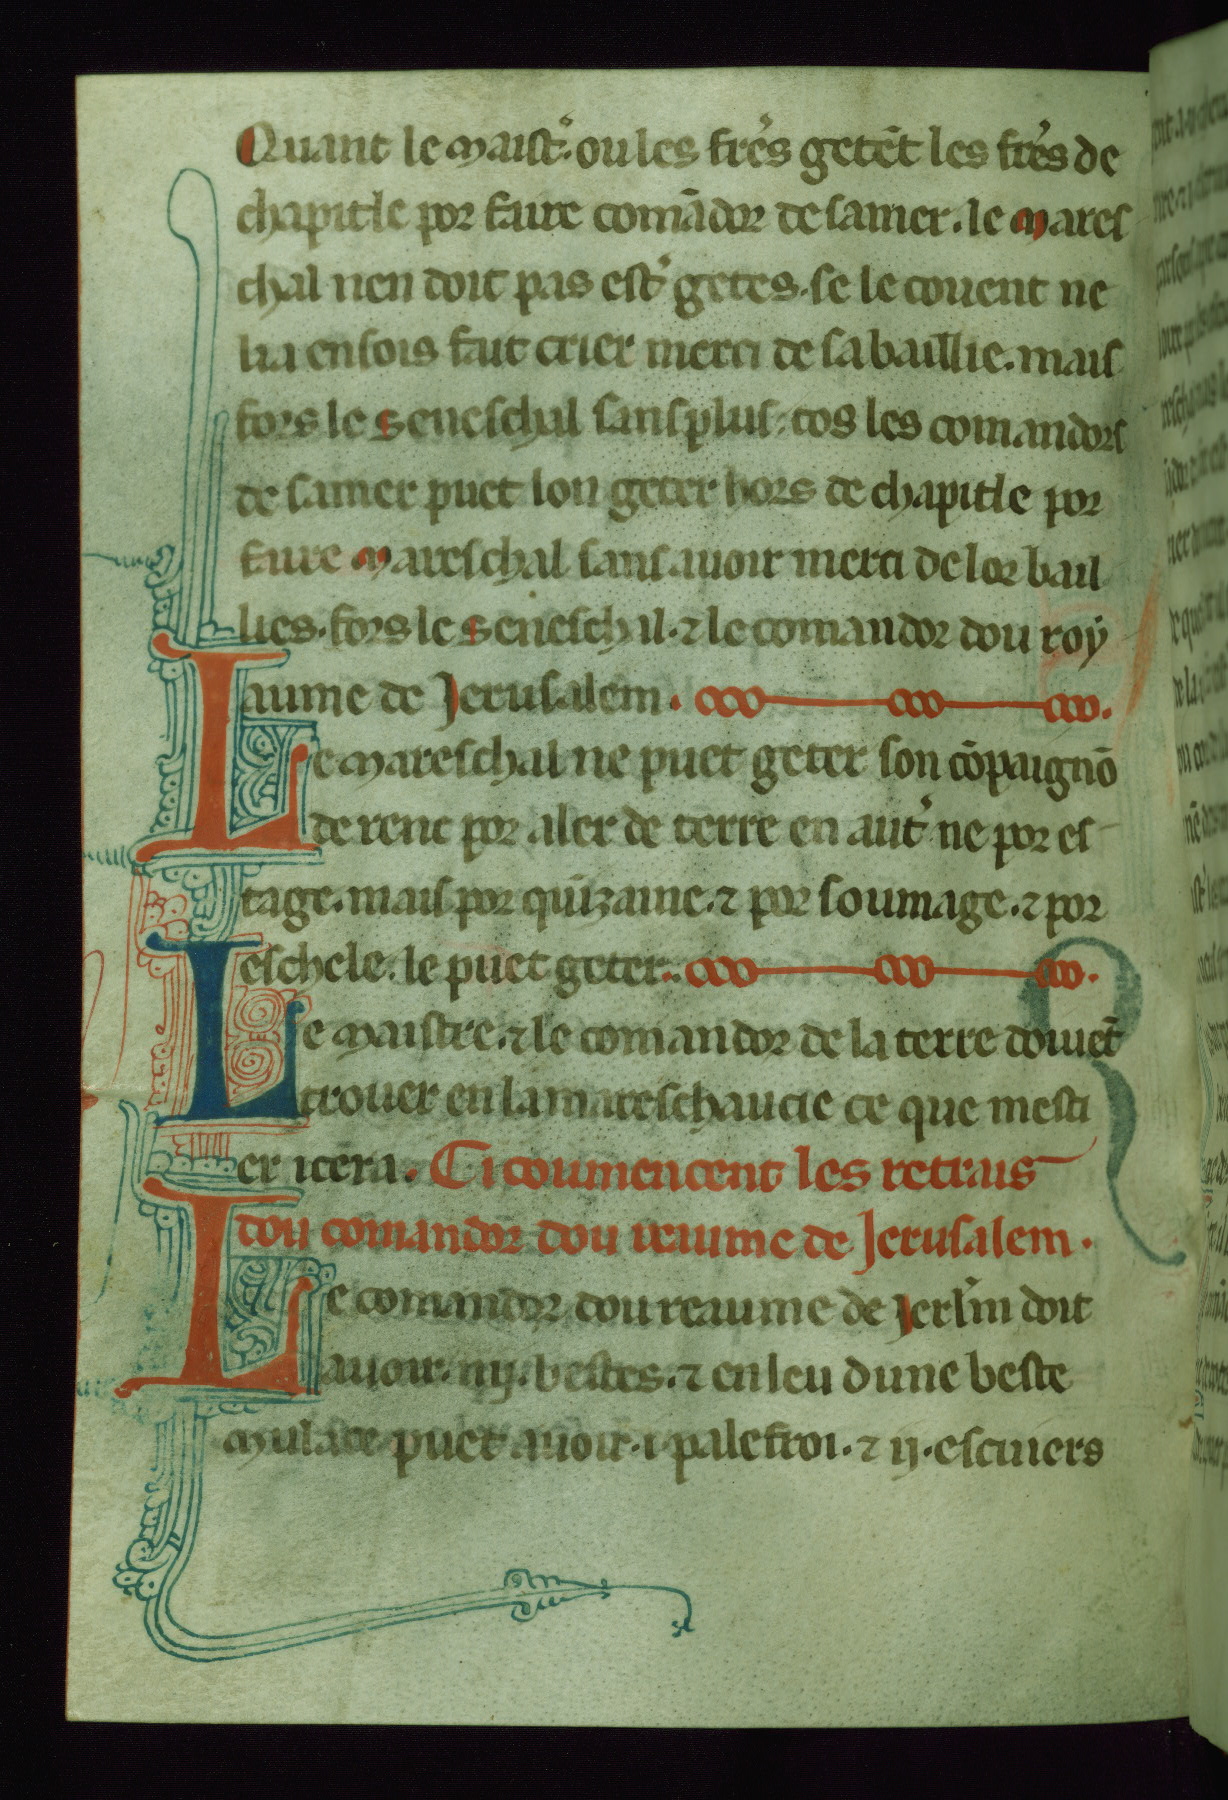 Quant le maist̉. ou les frẽs getẽt les frẽs de
chapitle por faire comãdor de samer. le mares
chal nen doit pas est̉ getes. se le couent ne
lia ensois fait crier merci de sa baillie. mais
fors le seneschal sans plus. tos les comandors
de samer puet lon geter hors de chapitle por
faire mareschal sans auoir merci de lor bail
lies. fors le seneschal. ⁊ le comandor dou roy
aume de Jerusalem.
Le mareschal ne puet geter son cõpaignõ
de renc por aler de terre en aut̉ ne por es
tage. mais por quizaine. ⁊ por soumage. ⁊ por
eschele. le puet geter.
Le maistre. ⁊ le comandor de la terre doiuẽt
trouer en la mareschaucie ce que mesti
er icera. Ci coumencent les retrais
dou comandor dou reaume de Jerusalem.
Le comandor dou reaume de Jerl̃m doit
auoir. iiij. bestes. ⁊ en leu dune beste
mulace puet auoir. i. palefroi. ⁊ ij. escuiers